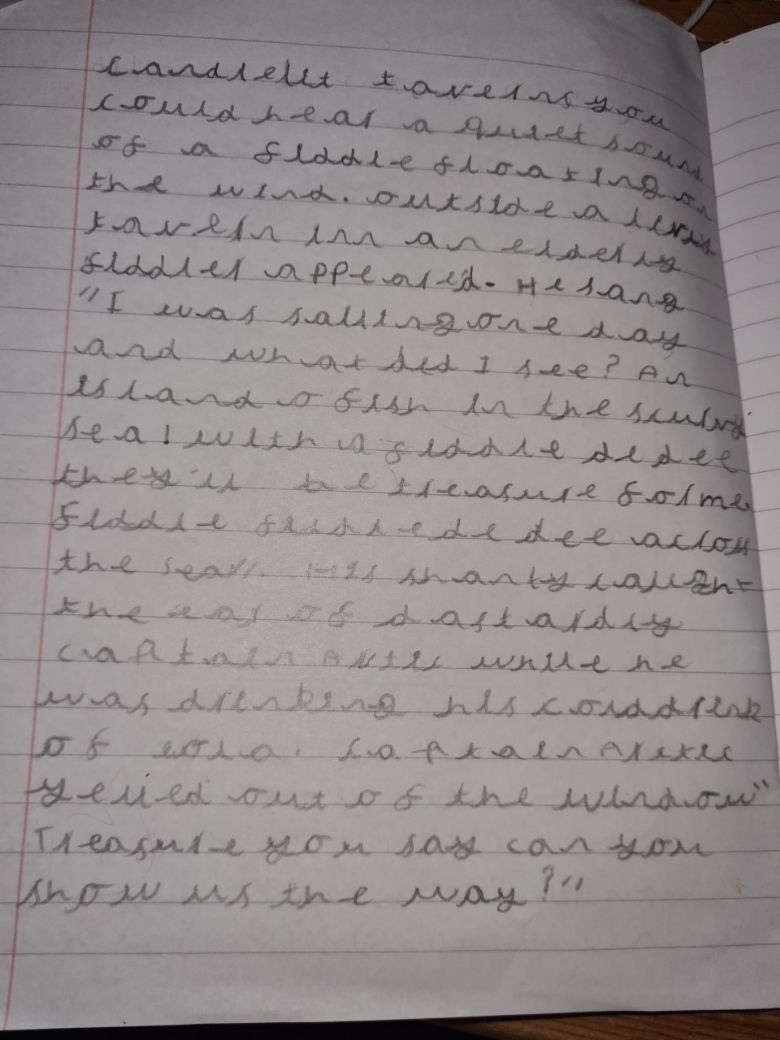 candlelit taverns you
could hear a quiet sound
of a fiddle floating on
the wind. outside a
tavern inn an elderly
fiddler appeared. He sang
"I was sailing one day
and what did I see? An
island o fish in the
sea! with a fiddle de dee
they'll be treasure for me
fiddle fiddle de dee across
the sea". His shanty caught
the ear of dastardly
captain while he
was drinking his cold drink
of cola. Captain
yelled out of the window"
Treasure you say can you
show us the way?"